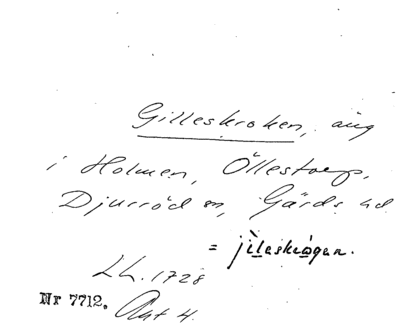 Gilleskroken, äng
i Holmen, Öllestorp,
Djurröd sn, Gärds hd
= jìleskrògan.
Lh. 1728
Nr 7712. Akt 4.